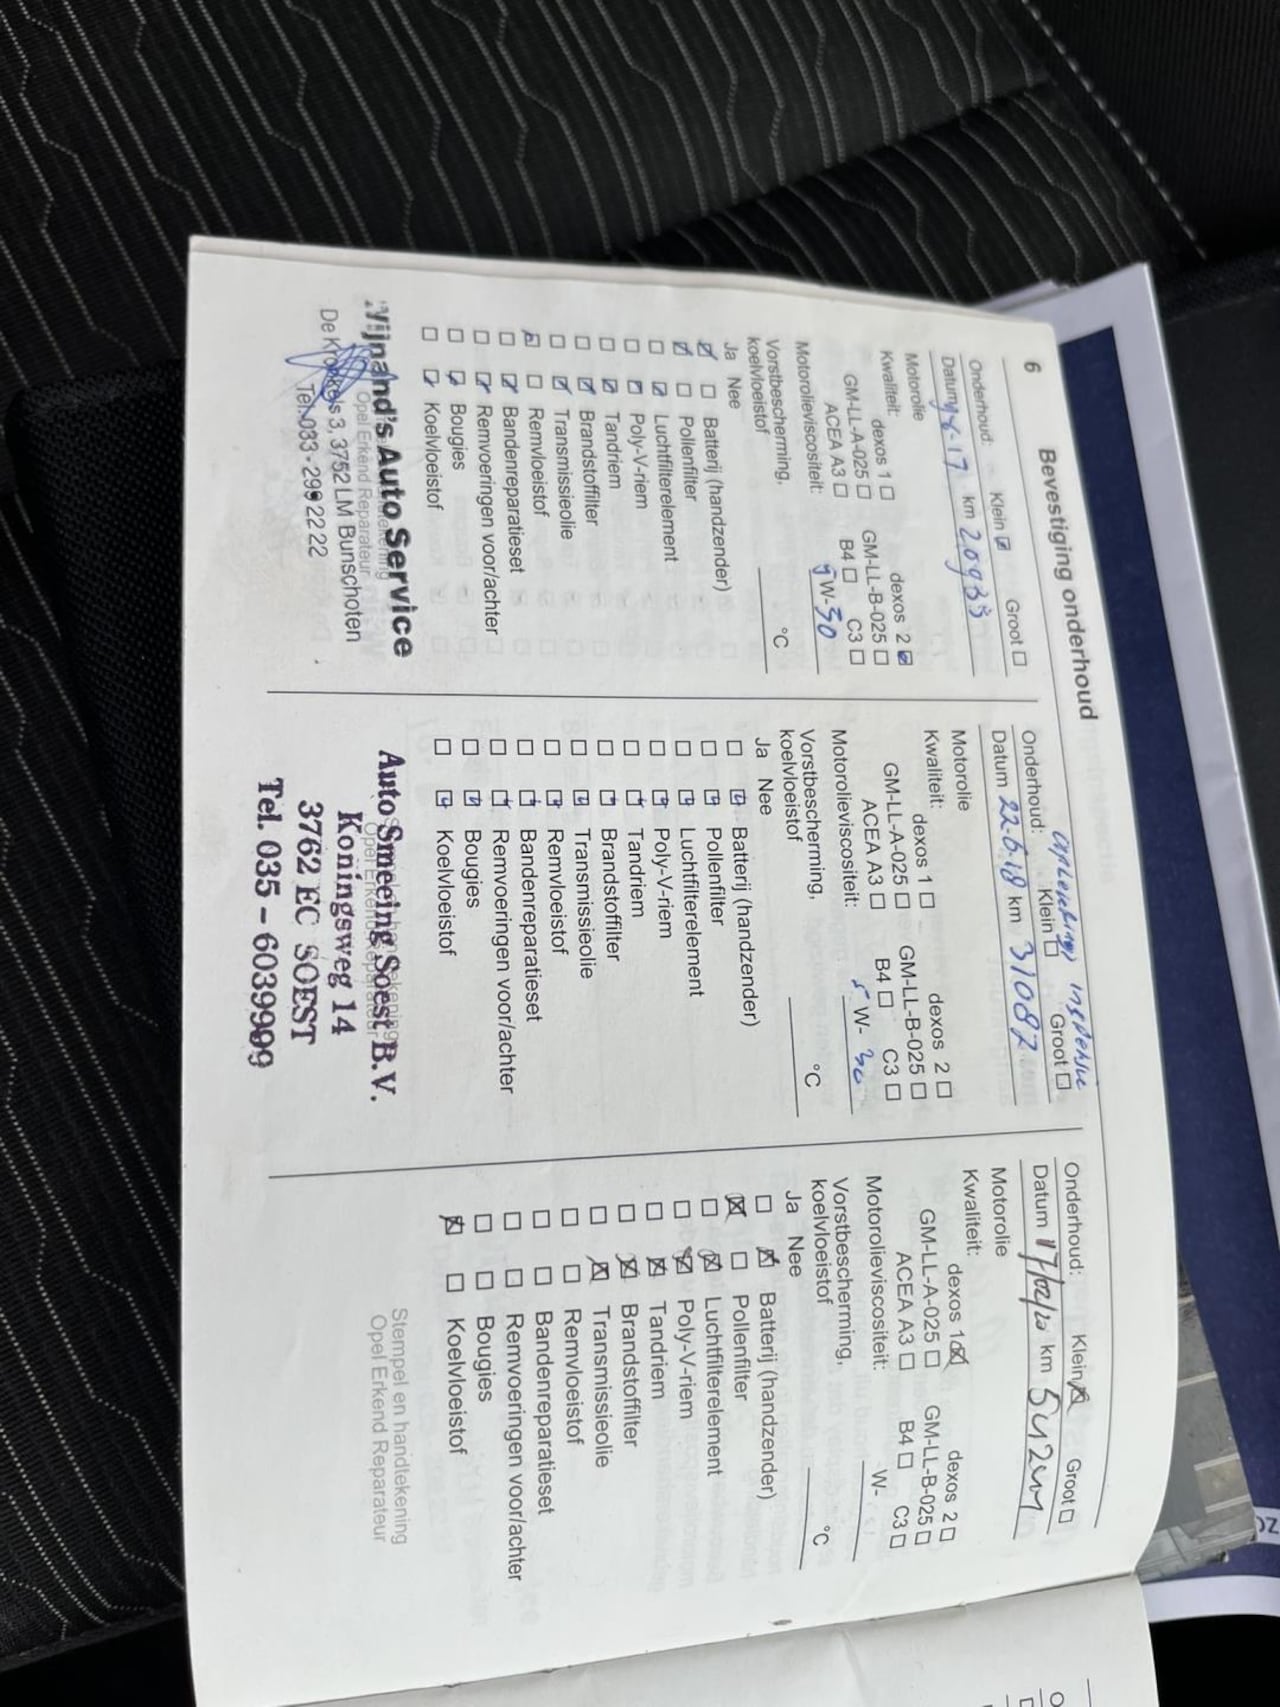 6 Bevestiging onderhoud
Onderhoud: Klein Groot
Datum km 20935
Motorolie
Kwaliteit: dexos 1 dexos 2
GM-LL-A-025 GM-LL-B-025
ACEA A3 B4 C3
Motorolieviscositeit: 5W-30
Vorstbescherming,
koelvloeistof °C
Ja Nee
Batterij (handzender)
Pollenfilter
Luchtfilterelement
Poly-V-riem
Tandriem
Brandstoffilter
Transmissieolie
Remvloeistof
Bandenreparatieset
Remvoeringen voor/achter
Bougies
Koelvloeistof
Wijnand's Auto Service
Opel Erkend Reparateur
De Kronkels 3, 3752 LM Bunschoten
Tel. 033 - 299 2222
Onderhoud: Klein Groot
Datum 22-6-18 km 31087
Motorolie
Kwaliteit: dexos 1 dexos 2
GM-LL-A-025 GM-LL-B-025
ACEA A3 B4 C3
Motorolieviscositeit: 5 W- 30
Vorstbescherming,
koelvloeistof °C
Ja Nee
Batterij (handzender)
Pollenfilter
Luchtfilterelement
Poly-V-riem
Tandriem
Brandstoffilter
Transmissieolie
Remvloeistof
Bandenreparatieset
Remvoeringen voor/achter
Bougies
Koelvloeistof
Auto Smeeing Soest B.V.
Opel Erkend Reparateur
Koningsweg 14
3762 EC SOEST
Tel. 035 - 6039909
Onderhoud: Klein Groot
Datum 17/02/20 km
Motorolie
Kwaliteit: dexos 1 dexos 2
GM-LL-A-025 GM-LL-B-025
ACEA A3 B4 C3
Motorolieviscositeit: W-
Vorstbescherming,
koelvloeistof °C
Ja Nee
Batterij (handzender)
Pollenfilter
Luchtfilterelement
Poly-V-riem
Tandriem
Brandstoffilter
Transmissieolie
Remvloeistof
Bandenreparatieset
Remvoeringen voor/achter
Bougies
Koelvloeistof
Stempel en handtekening
Opel Erkend Reparateur